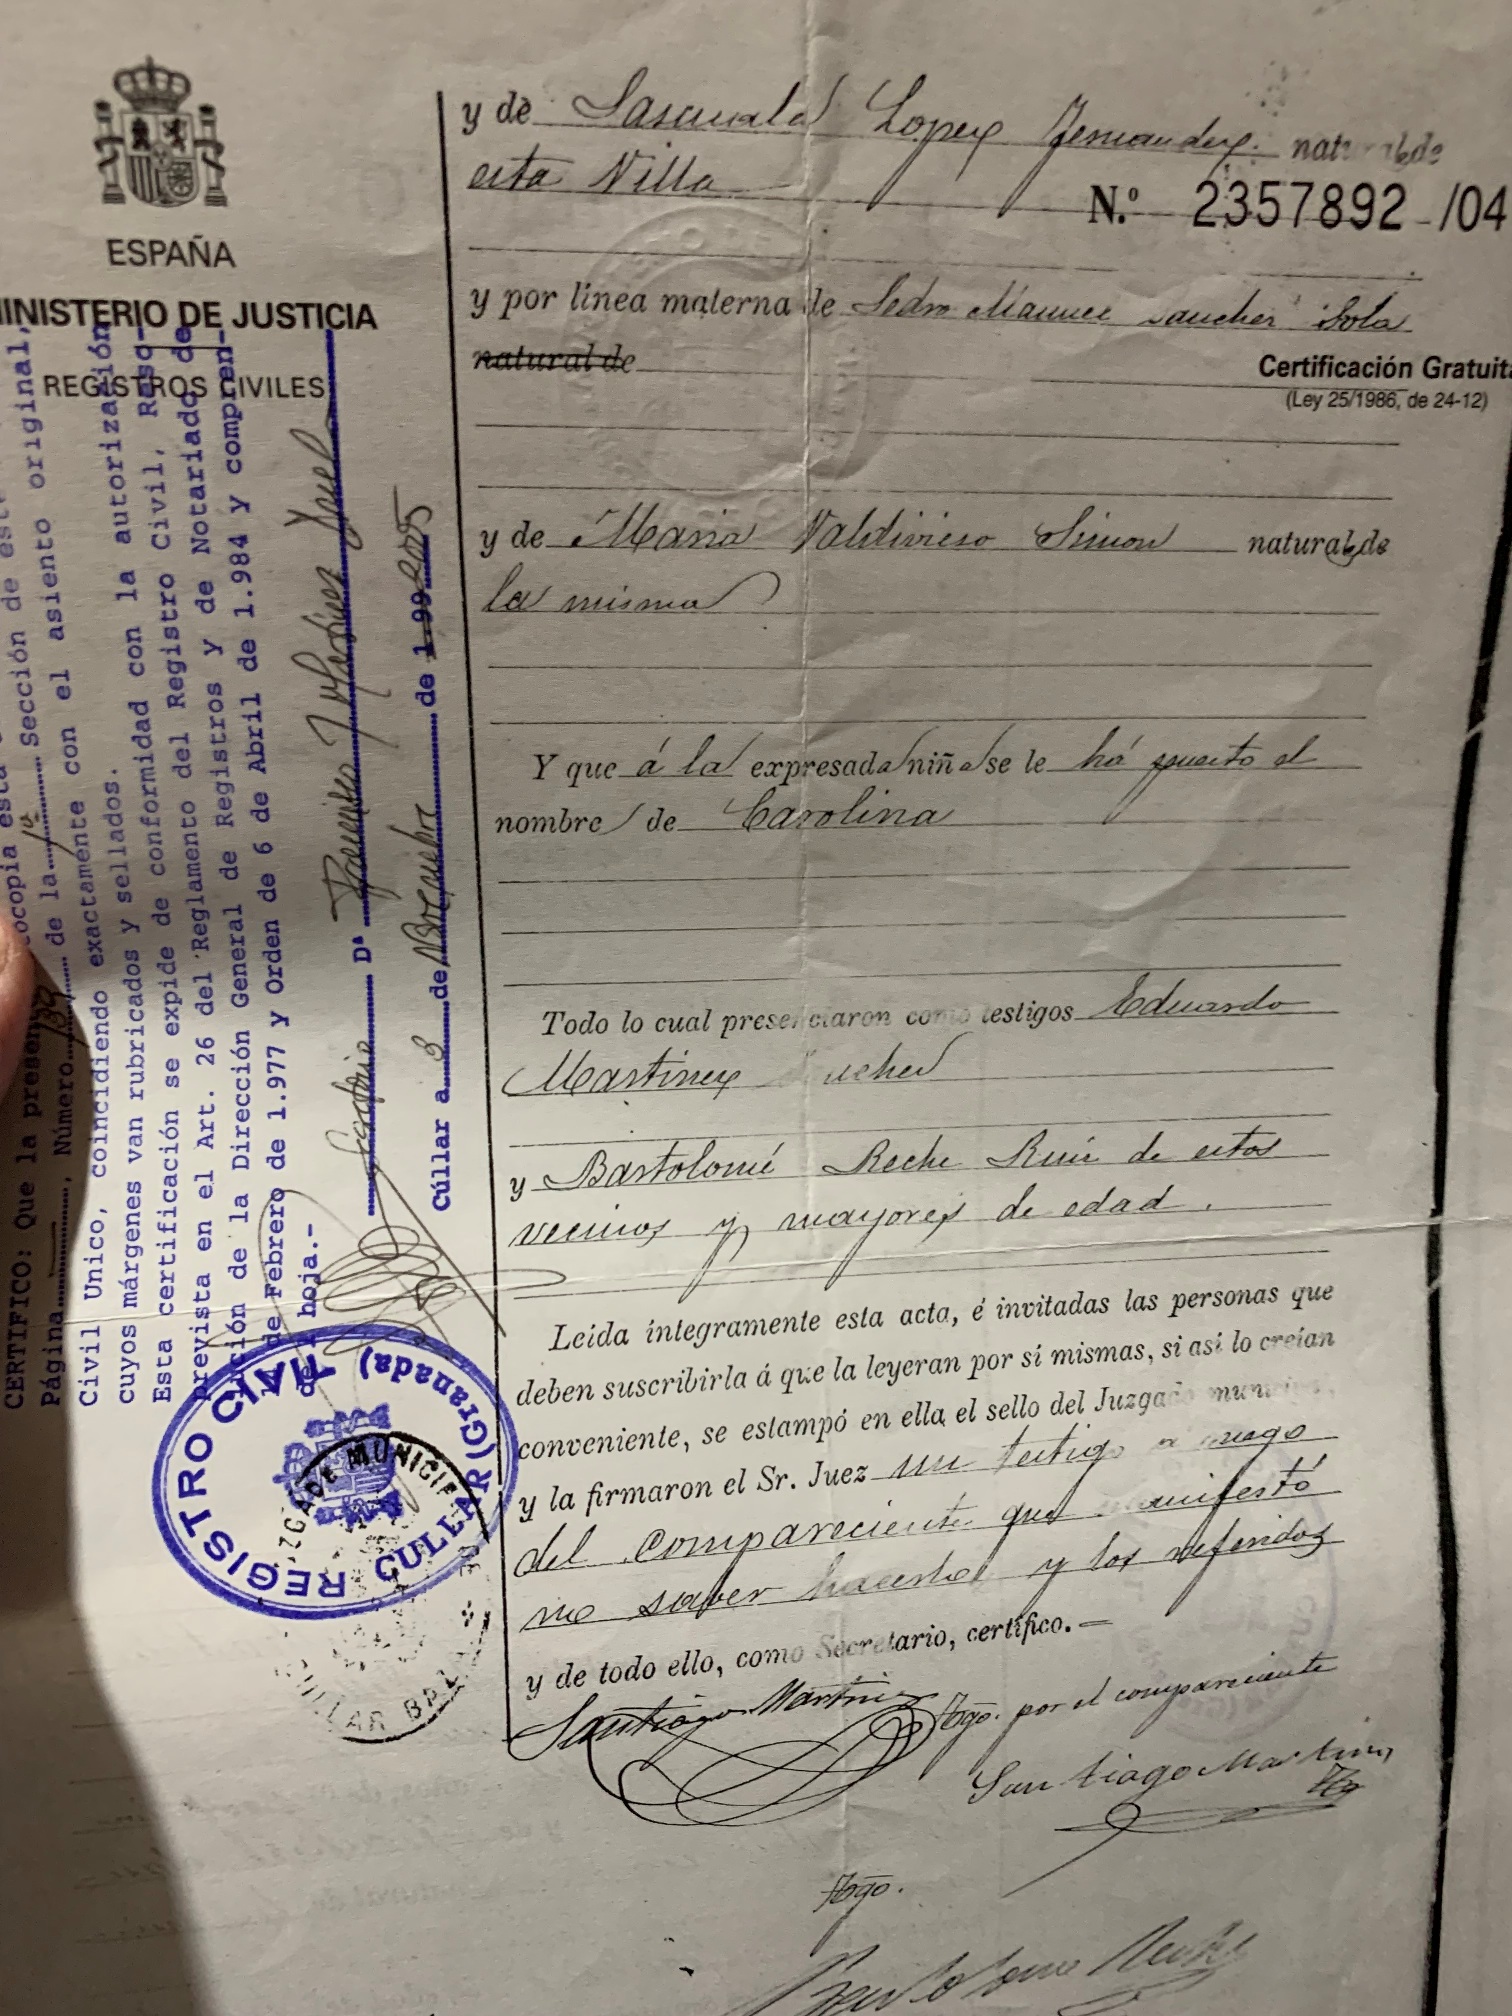 ESPAÑA
MINISTERIO DE JUSTICIA
REGISTROS CIVILES
y de Pascuala Lopez Fernandez natural de
esta Villa
N.º 2357892 /04
y por línea materna de Pedro Manuel Sanches Sola
natural de
Certificación Gratuita
(Ley 25/1986, de 24-12)
y de Maria Valdivieso Simon natural de
la misma
Y que á la expresada niña se le há puesto el
nombre de Carolina
Todo lo cual presenciaron como testigos Eduardo
Martinez
y Bartolomé Reche Ruiz de estos
vecinos y mayores de edad.
Leída íntegramente esta acta, é invitadas las personas que
deben suscribirla á que la leyeran por sí mismas, si así lo creían
conveniente, se estampó en ella el sello del Juzgado municipal,
y la firmaron el Sr. Juez un testigo a ruego
del compareciente que manifestó
no saver hacerlo y los referidos
y de todo ello, como Secretario, certifico.—
Santiago Martinez
Tgo. por el compareciente
Santiago Martinez
Tgo.
Bartolome Reche
CERTIFICO: Que la presente fotocopia esta
Página, Número de la 1ª Sección de este
Civil Unico, coincidiendo exactamente con el asiento original,
cuyos márgenes van rubricados y sellados.
Esta certificación se expide de conformidad con la autorización
prevista en el Art. 26 del Reglamento del Registro Civil, Reso-
lución de la Dirección General de Registros y de Notariado de
de Febrero de 1.977 y Orden de 6 de Abril de 1.984 y compren-
de hoja.-
Dª
Cúllar a 3 de Noviembre de 1.99 2005
REGISTRO CIVIL
CULLAR (Granada)
JUZGADO MUNICIPAL
CULLAR BAZA